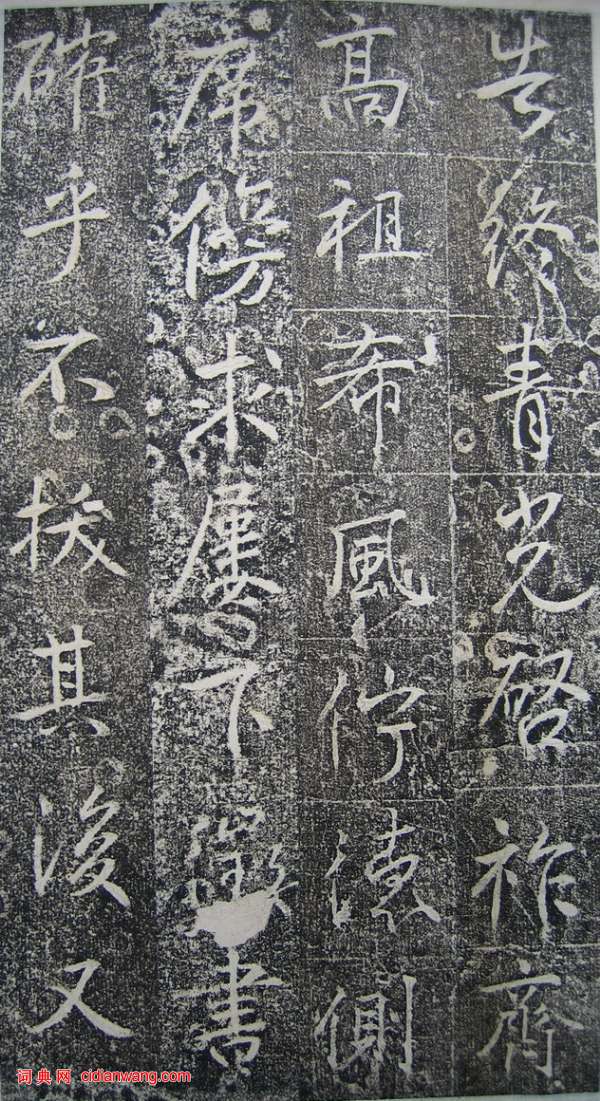 告終青光啓祚齊
高祖希風佇德側
席傍求屢下徵書
確乎不拔其後又
词典网 cidianwang.com